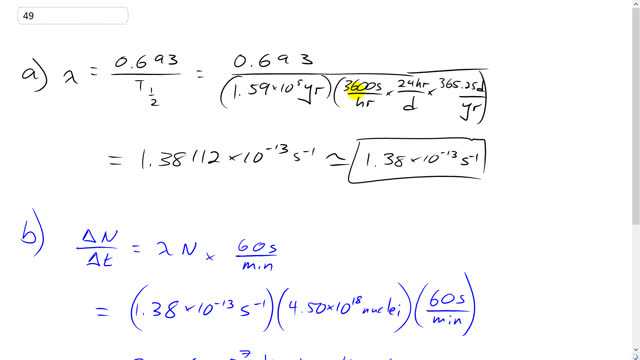 49
a) λ = 0.693 / T 1/2 = 0.693 / (1.59×10⁵ yr)(3600s/hr × 24hr/d × 365.25d/yr)
= 1.38112×10⁻¹³ s⁻¹ ≃ 1.38×10⁻¹³ s⁻¹
b) ΔN/Δt = λ N × 60s/min
= (1.38×10⁻¹³ s⁻¹)(4.50×10¹⁸ nuclei)(60s/min)